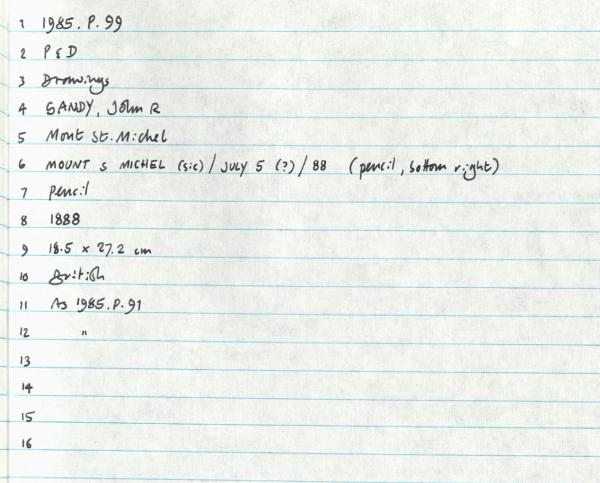 1 1985.P.99
2 P & D
3 Drawings
4 GANDY, John R
5 Mont St. Michel
6 MOUNT S MICHEL (sic) / JULY 5 (?) / 88 (pencil, bottom right)
7 pencil
8 1888
9 18.5 x 27.2 cm
10 British
11 As 1985.P.91
12 "
13
14
15
16